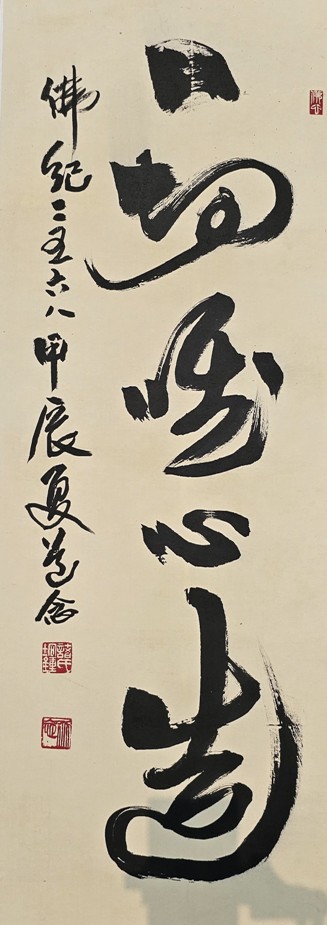 一切唯心造
佛紀二五六八甲辰夏道念